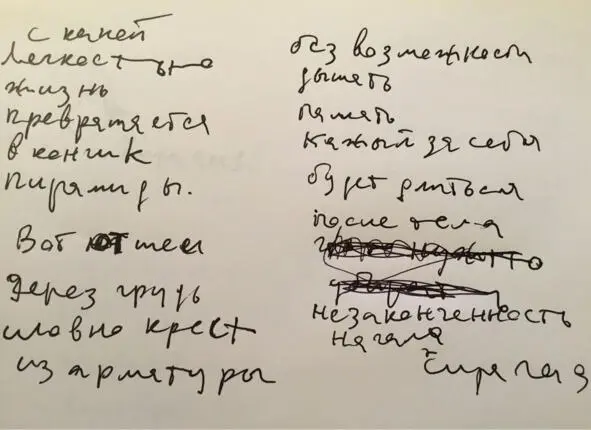 с какой
легкостью
жизнь
превращается
в кончик
пирамиды.
Вот от шеи
через грудь
словно крест
из арматуры
без возможности
дышать
память
каждый за себя
будет длиться
после тела
незаконченность
начала